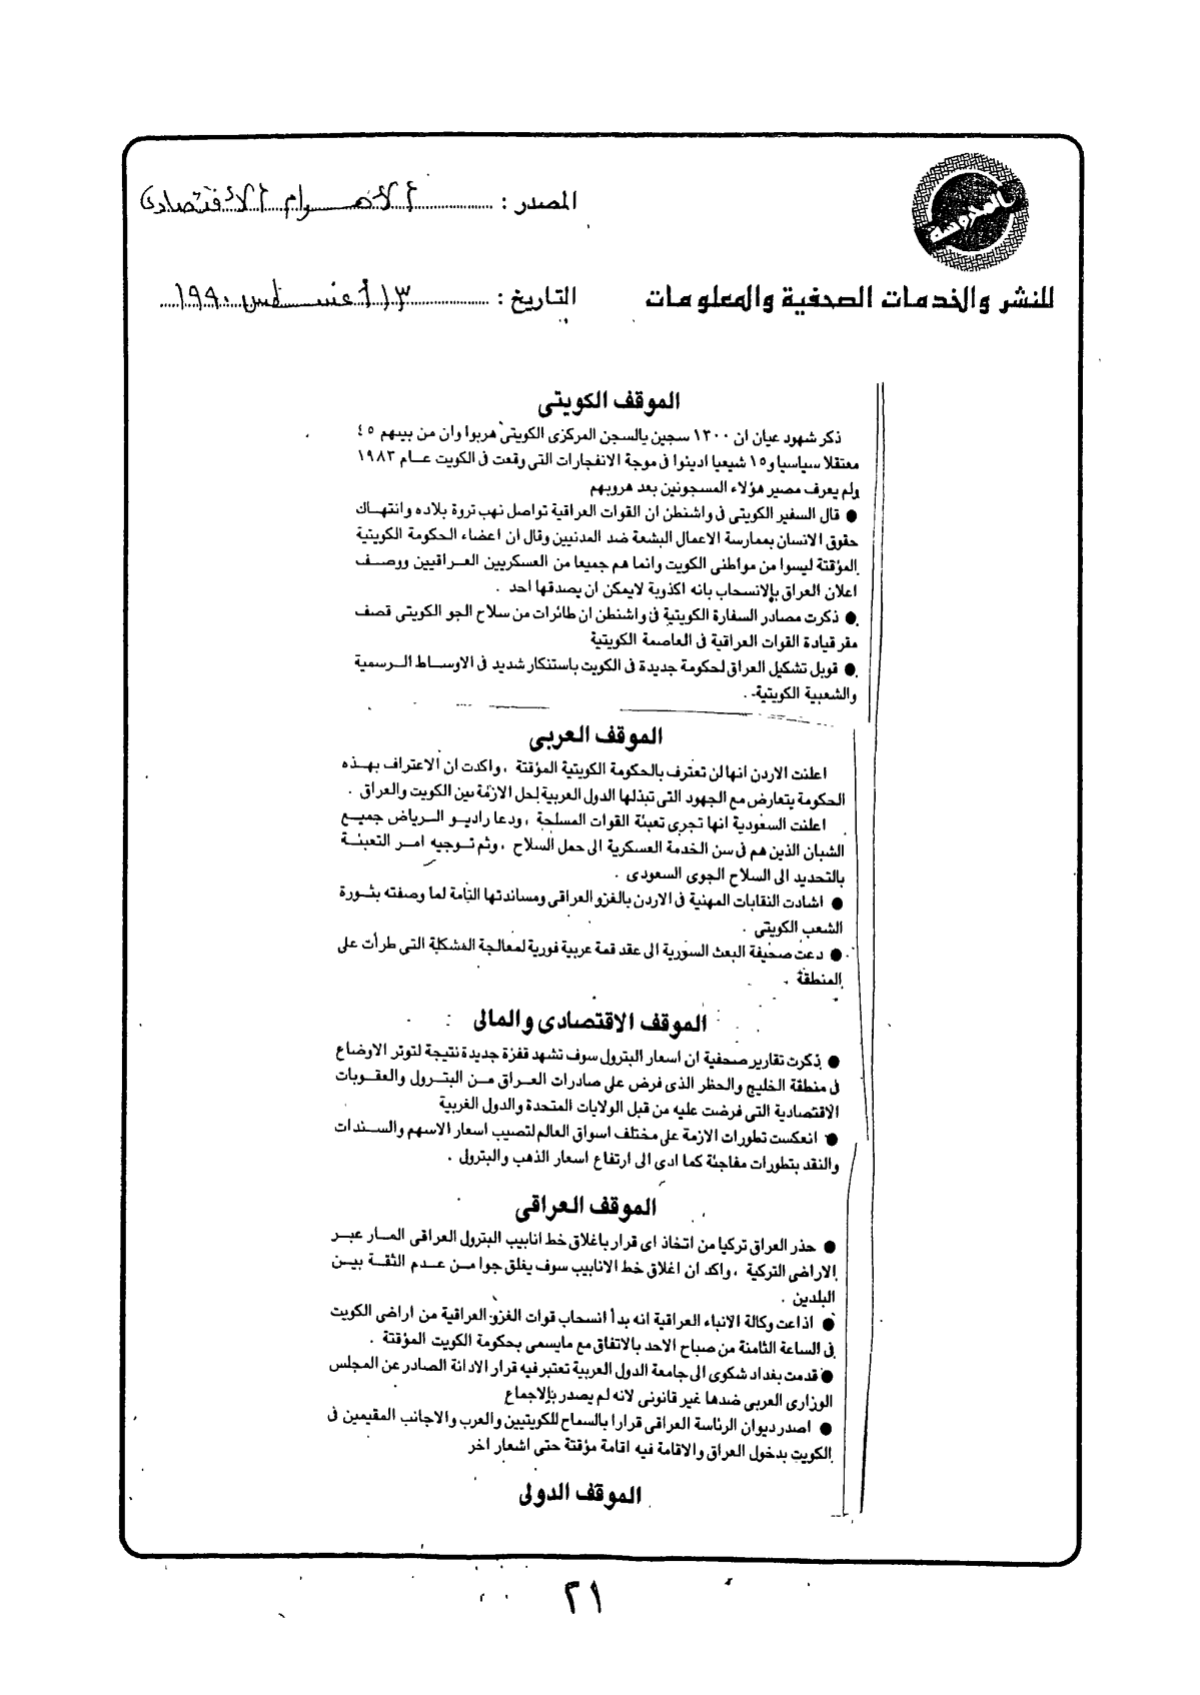 المحروسة
المصدر : الأهرام الاقتصادى
للنشر والخدمات الصحفية والمعلومات
التاريخ : ١٣ أغسطس ١٩٩٠
الموقف الكويتى
ذكر شهود عيان ان ١٣٠٠ سجين بالسجن المركزى الكويتى هربوا وان من بينهم ٤٥
معتقلا سياسيا و١٥ شيعيا ادينوا فى موجة الانفجارات التى وقعت فى الكويت عـام ١٩٨٣
ولم يعرف مصير هؤلاء المسجونين بعد هروبهم
● قال السفير الكويتى فى واشنطن ان القوات العراقية تواصل نهب ثروة بلاده وانتهـاك
حقوق الانسان بممارسة الاعمال البشعة ضد المدنيين وقال ان اعضاء الحكومة الكويتية
المؤقتة ليسوا من مواطنى الكويت وانما هم جميعا من العسكريين العـراقيين ووصـف
اعلان العراق بالانسحاب بانه اكذوبة لايمكن ان يصدقها احد .
● ذكرت مصادر السفارة الكويتية فى واشنطن ان طائرات من سلاح الجو الكويتى قصف
مقر قيادة القوات العراقية فى العاصمة الكويتية
● قوبل تشكيل العراق لحكومة جديدة فى الكويت باستنكار شديد فى الاوسـاط الـرسمية
والشعبية الكويتية .
الموقف العربى
اعلنت الاردن انها لن تعترف بالحكومة الكويتية المؤقتة ، واكدت ان الاعتراف بهـذه
الحكومة يتعارض مع الجهود التى تبذلها الدول العربية لحل الازمة بين الكويت والعراق .
اعلنت السعودية انها تجرى تعبئة القوات المسلحة ، ودعا راديـو الـرياض جميـع
الشبان الذين هم فى سن الخدمة العسكرية الى حمل السلاح ، وثم تـوجيه امـر التعبئـة
بالتحديد الى السلاح الجوى السعودى .
● اشادت النقابات المهنية فى الاردن بالغزو العراقى ومساندتها التامة لما وصفته بثـورة
الشعب الكويتى .
● دعت صحيفة البعث السورية الى عقد قمة عربية فورية لمعالجة المشكلة التى طرأت على
المنطقة .
الموقف الاقتصادى والمالى :
● ذكرت تقارير صحفية ان اسعار البترول سوف تشهد قفزة جديدة نتيجة لتوتر الاوضاع
فى منطقة الخليج والحظر الذى فرض على صادرات العـراق مـن البتـرول والعقـوبات
الاقتصادية التى فرضت عليه من قبل الولايات المتحدة والدول الغربية
● انعكست تطورات الازمة على مختلف اسواق العالم لتصيب اسعار الاسهم والسـندات
والنقد بتطورات مفاجئة كما ادى الى ارتفاع اسعار الذهب والبترول .
الموقف العراقى
● حذر العراق تركيا من اتخاذ اى قرار باغلاق خط انابيب البترول العراقى المـار عبـر
الاراضى التركية ، واكد ان اغلاق خط الانابيب سوف يغلق جوا مـن عـدم الثقـة بيـن
البلدين .
● اذاعت وكالة الانباء العراقية انه بدأ انسحاب قوات الغزو العراقية من اراضى الكويت
فى الساعة الثامنة من صباح الاحد بالاتفاق مع مايسمى بحكومة الكويت المؤقتة .
● قدمت بغداد شكوى الى جامعة الدول العربية تعتبر فيه قرار الادانة الصادر عن المجلس
الوزارى العربى ضدها غير قانونى لانه لم يصدر بالاجماع
● اصدر ديوان الرئاسة العراقى قرارا بالسماح للكويتيين والعرب والاجانب المقيمين فى
الكويت بدخول العراق والاقامة فيه اقامة مؤقتة حتى اشعار اخر
الموقف الدولى
٢١